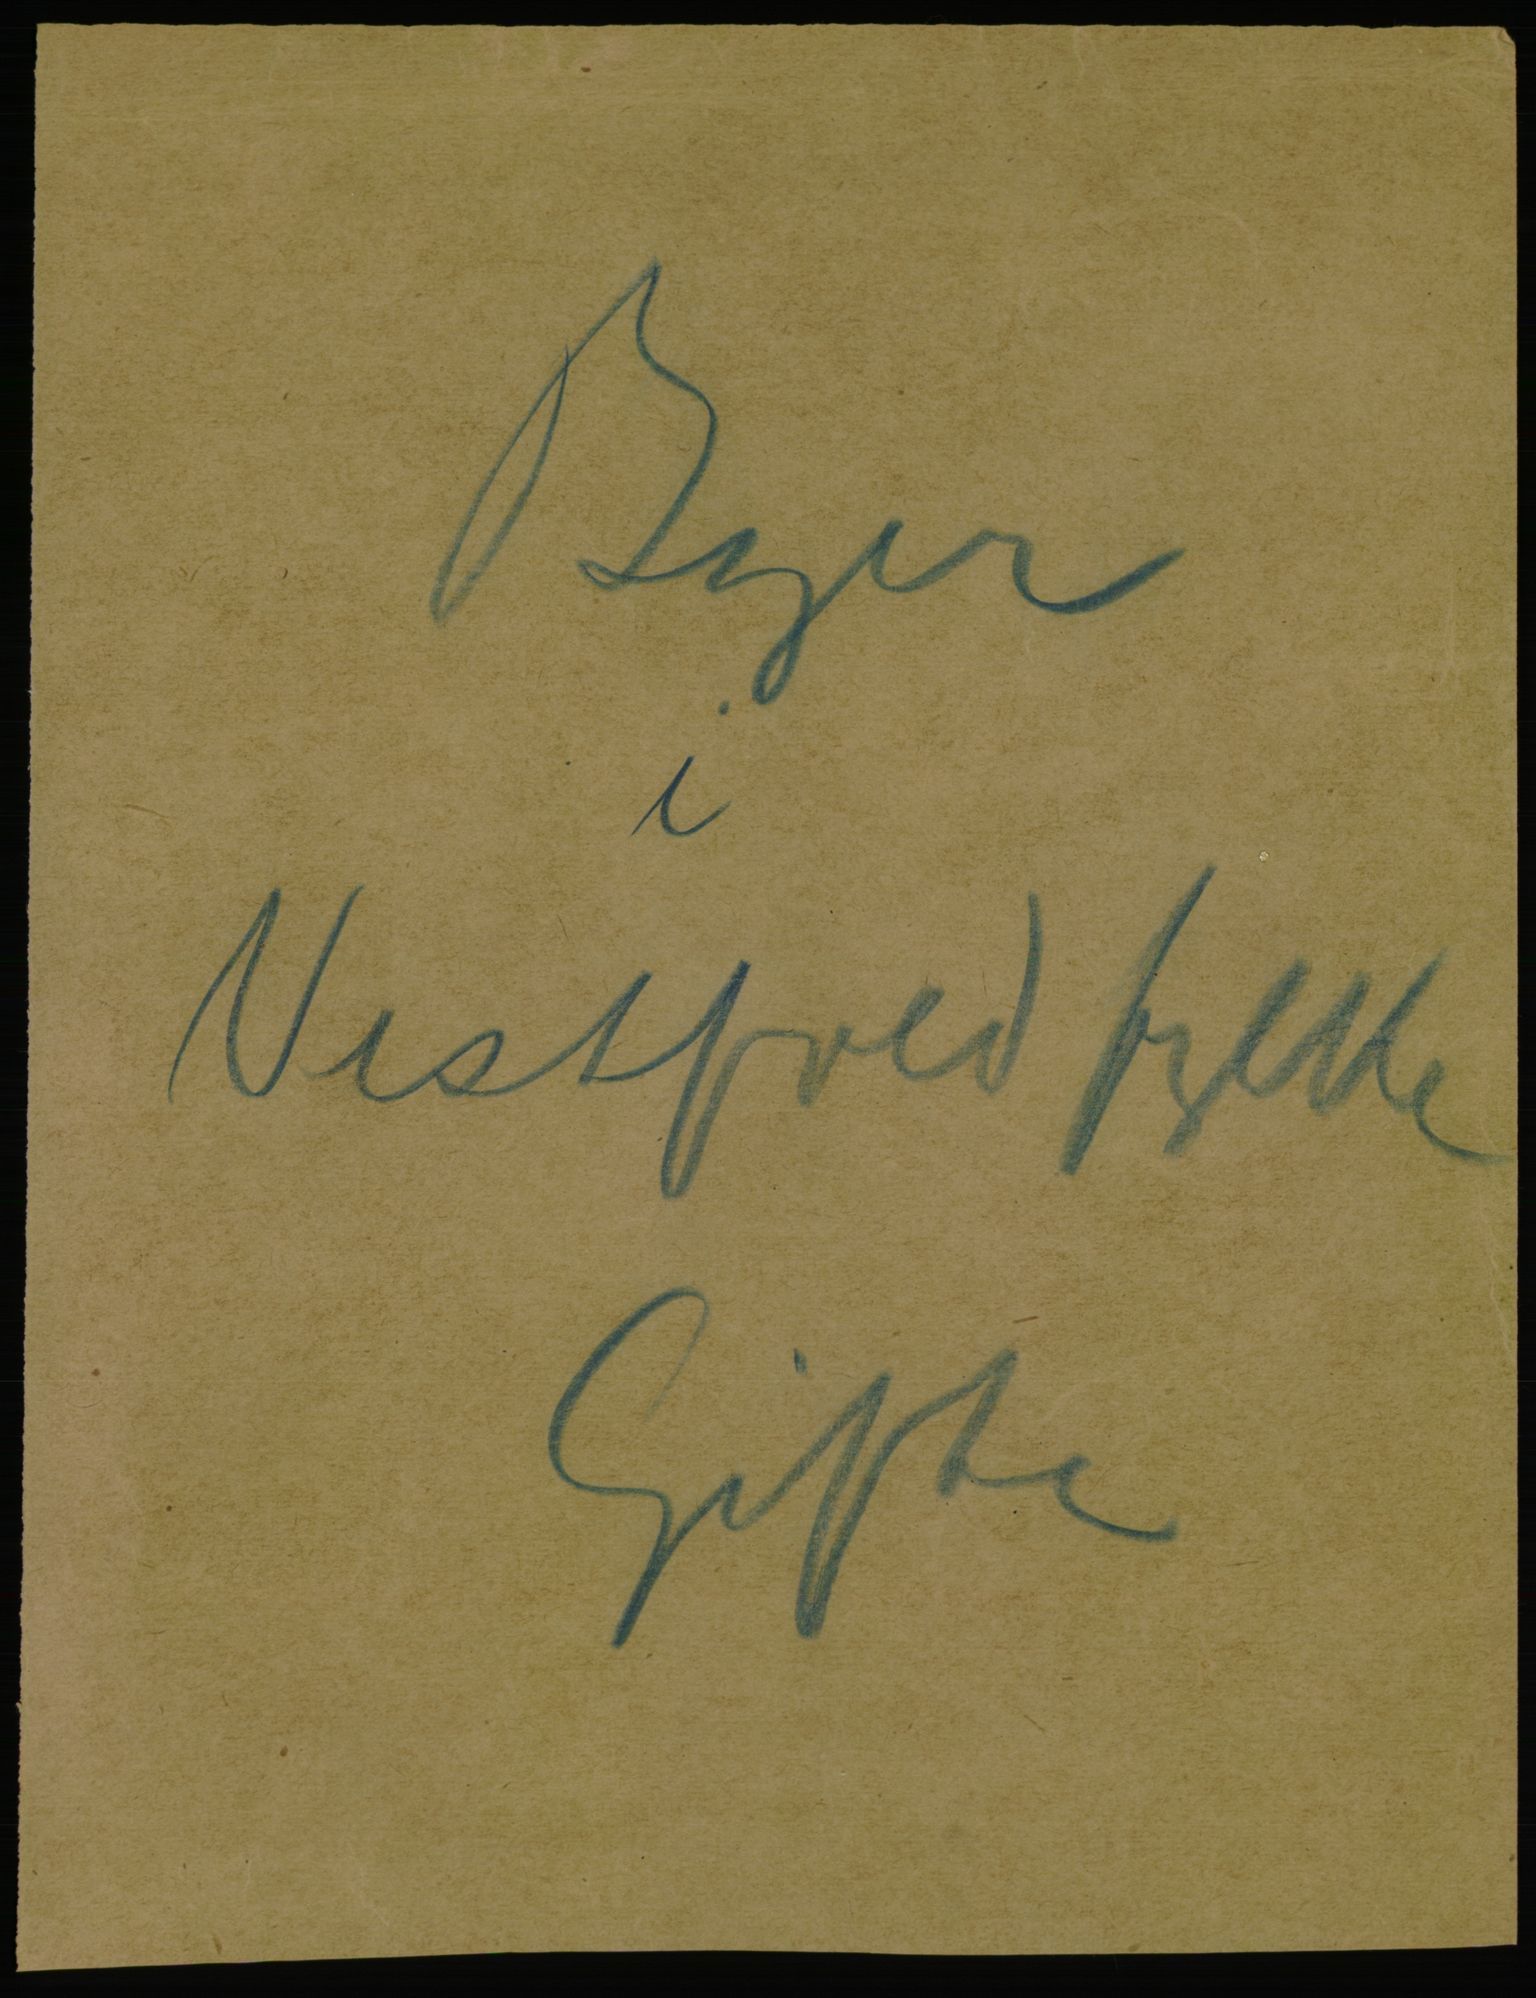 Byer
i
Vestfold fylke
Gifte